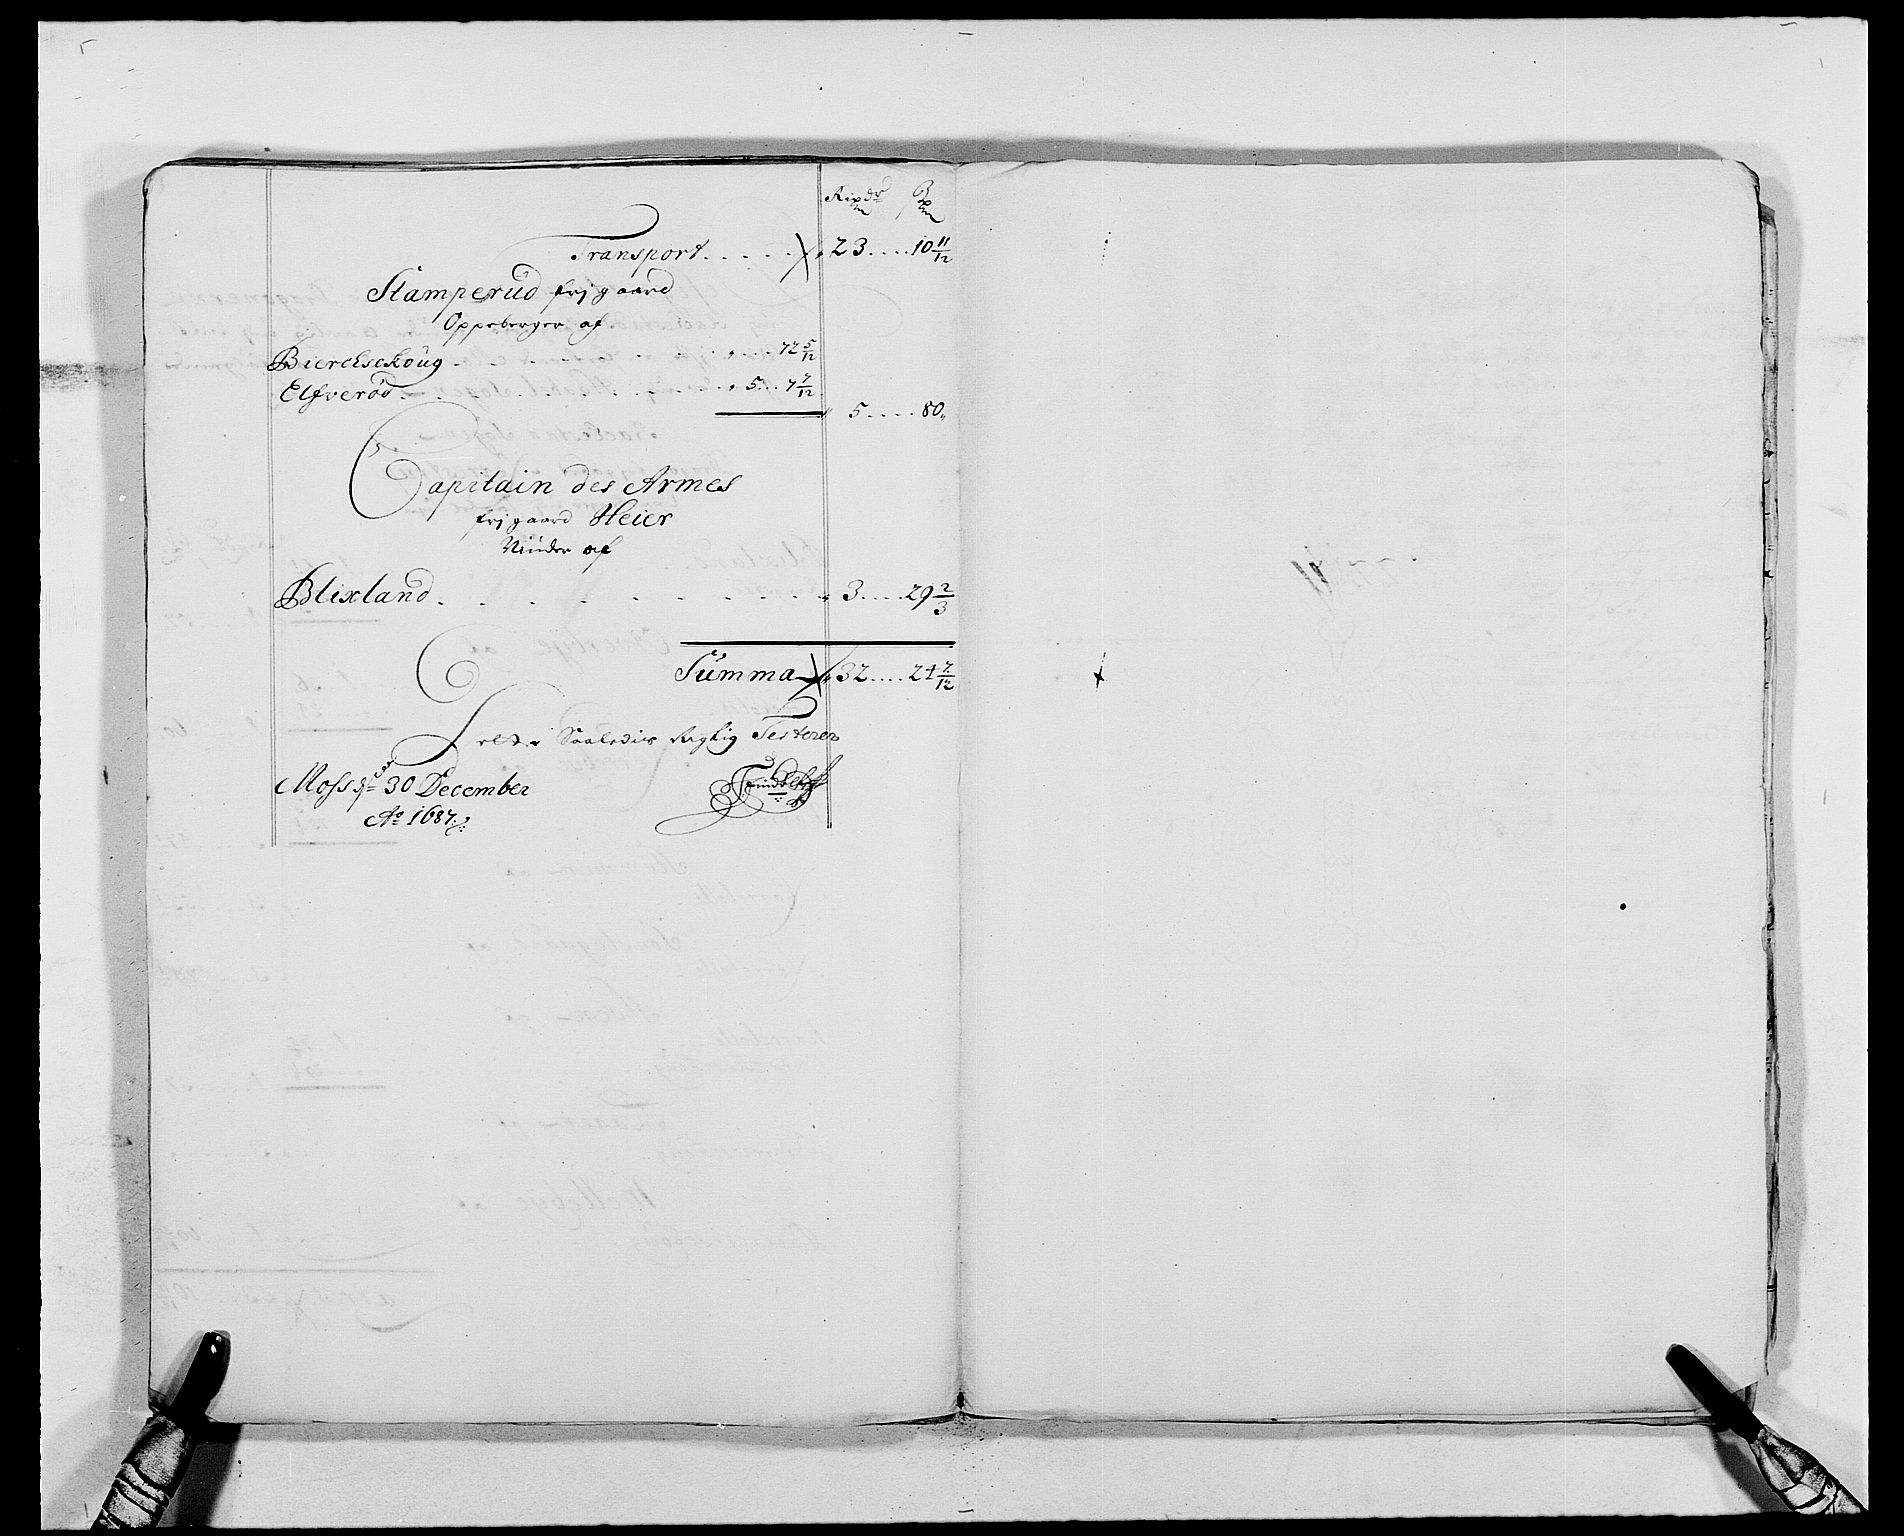 Rixdr ß
Transport . . . . . 23 . . . . 10 11/12
Stamperüd frj gaard
Oppeberger af
Bierchschoüg . . . . . . . . 72 5/12
Elfverød . . . . . . . . 5 . . . 7 7/12
5 . . . . 80
Capitain des Armes
frj gaard Heier
Niüder af
Blixland . . . . . . . . . 3 . . . . 29 2/3
Sümma 32 . . . . 24 7/12
Dette Saaledis Rigtig Testerer
Moss d 30 December
Ao 1687